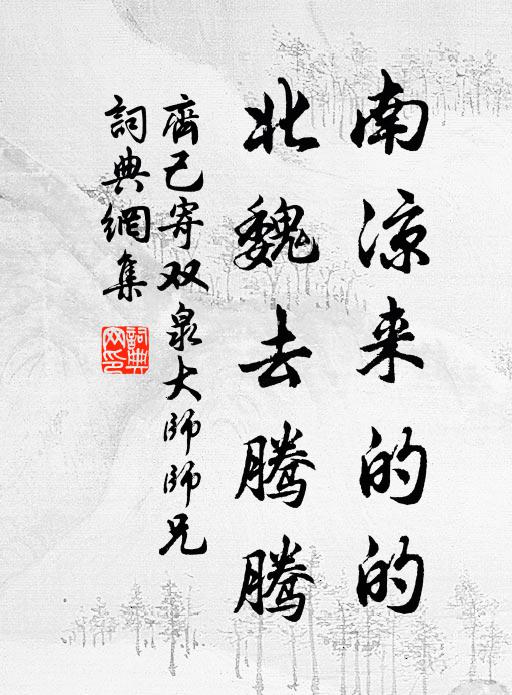 南凉来的的
北魏去腾腾
齊己寄双泉大師師兄
詞典網集
詞典網印